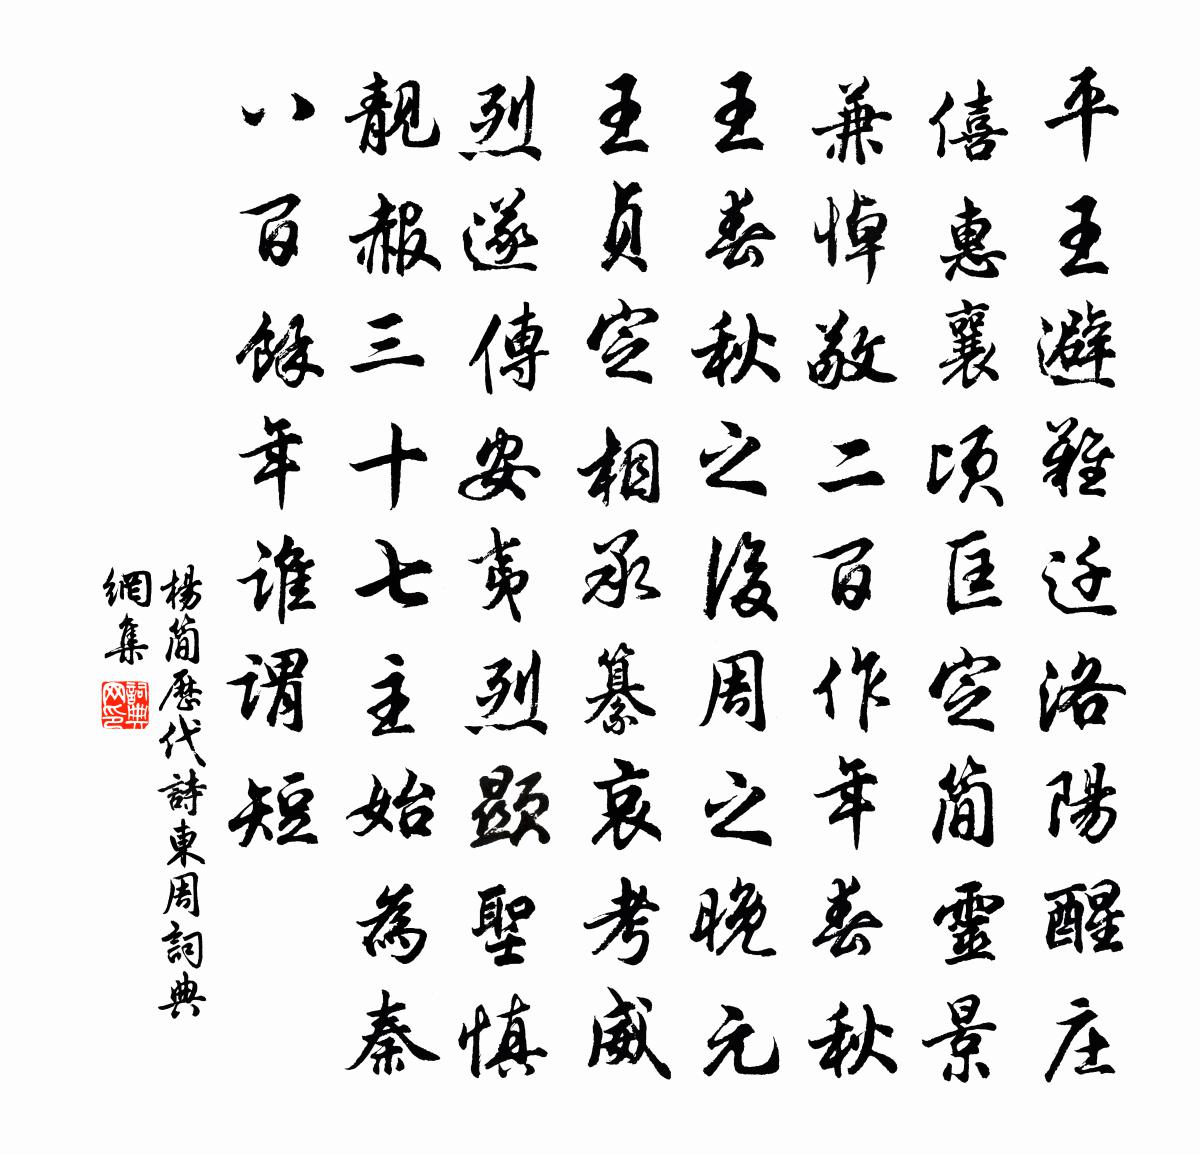 平王避難迁洛陽醒庄
僖惠襄頃匡定簡靈景
兼悼敬二百作年春秋
王春秋之後周之晚元
王貞定相承纂哀考威
烈遂傳安夷烈顯聖慎
靚赧三十七主始為秦
八百餘年誰謂短
楊簡歷代詩東周詞典
網集
詞典
网印